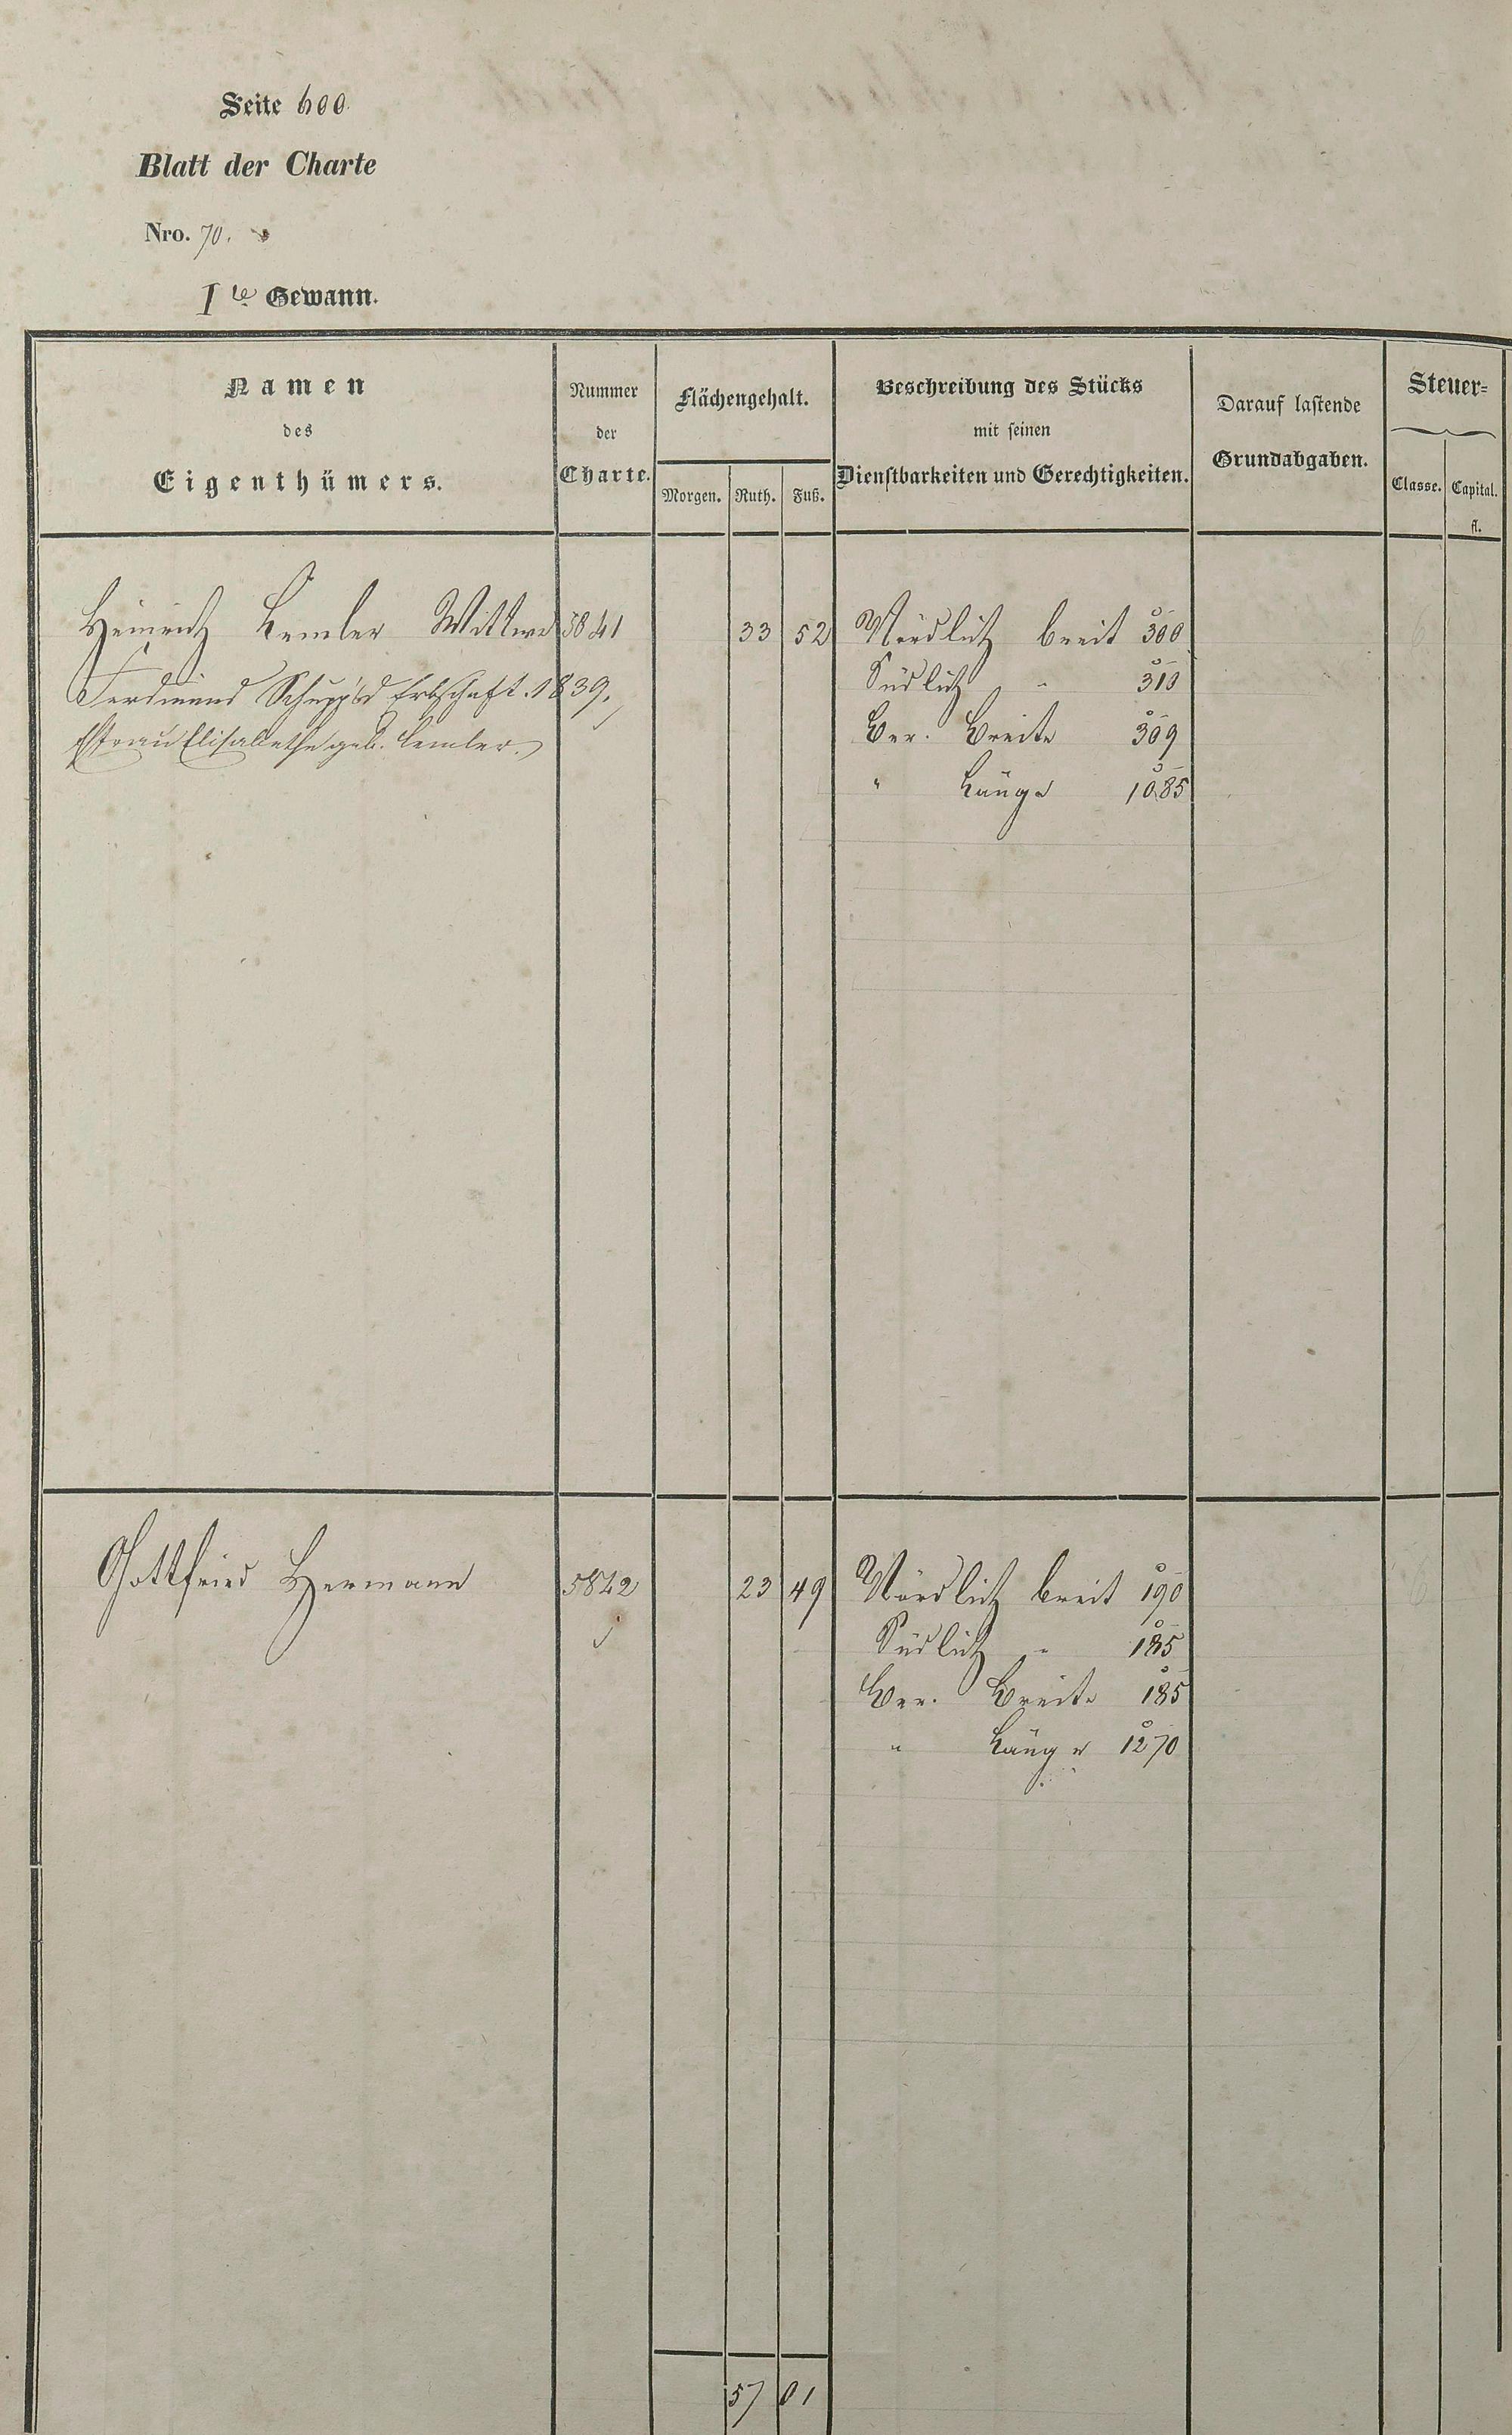 Seite 600
Blatt der Charte
Nro. 70.
Ite Gewann.
Namen
des
Eigenthümers.
Nummer
der
Charte.
Flächengehalt.
Morgen. Ruth. Fuß.
Beschreibung des Stücks
mit seinen
Dienstbarkeiten und Gerechtigkeiten.
Darauf lastende
Grundabgaben.
Steuer=
Classe. Capital.
fl.
Heinrich Lemler Wittwe 5841 33 52 Nördlich breit 300
Ferdinand Schupp's Erbschaft. 1839. Südlich " 310
Frau Elisabethe geb. Lemler. Ber. Breite 309
" Länge 1085
Gottfried Hermann 5842 23 49 Nördlich breit 190
Südlich " 185
Ber. Breite 185
" Länge 1270
57 01